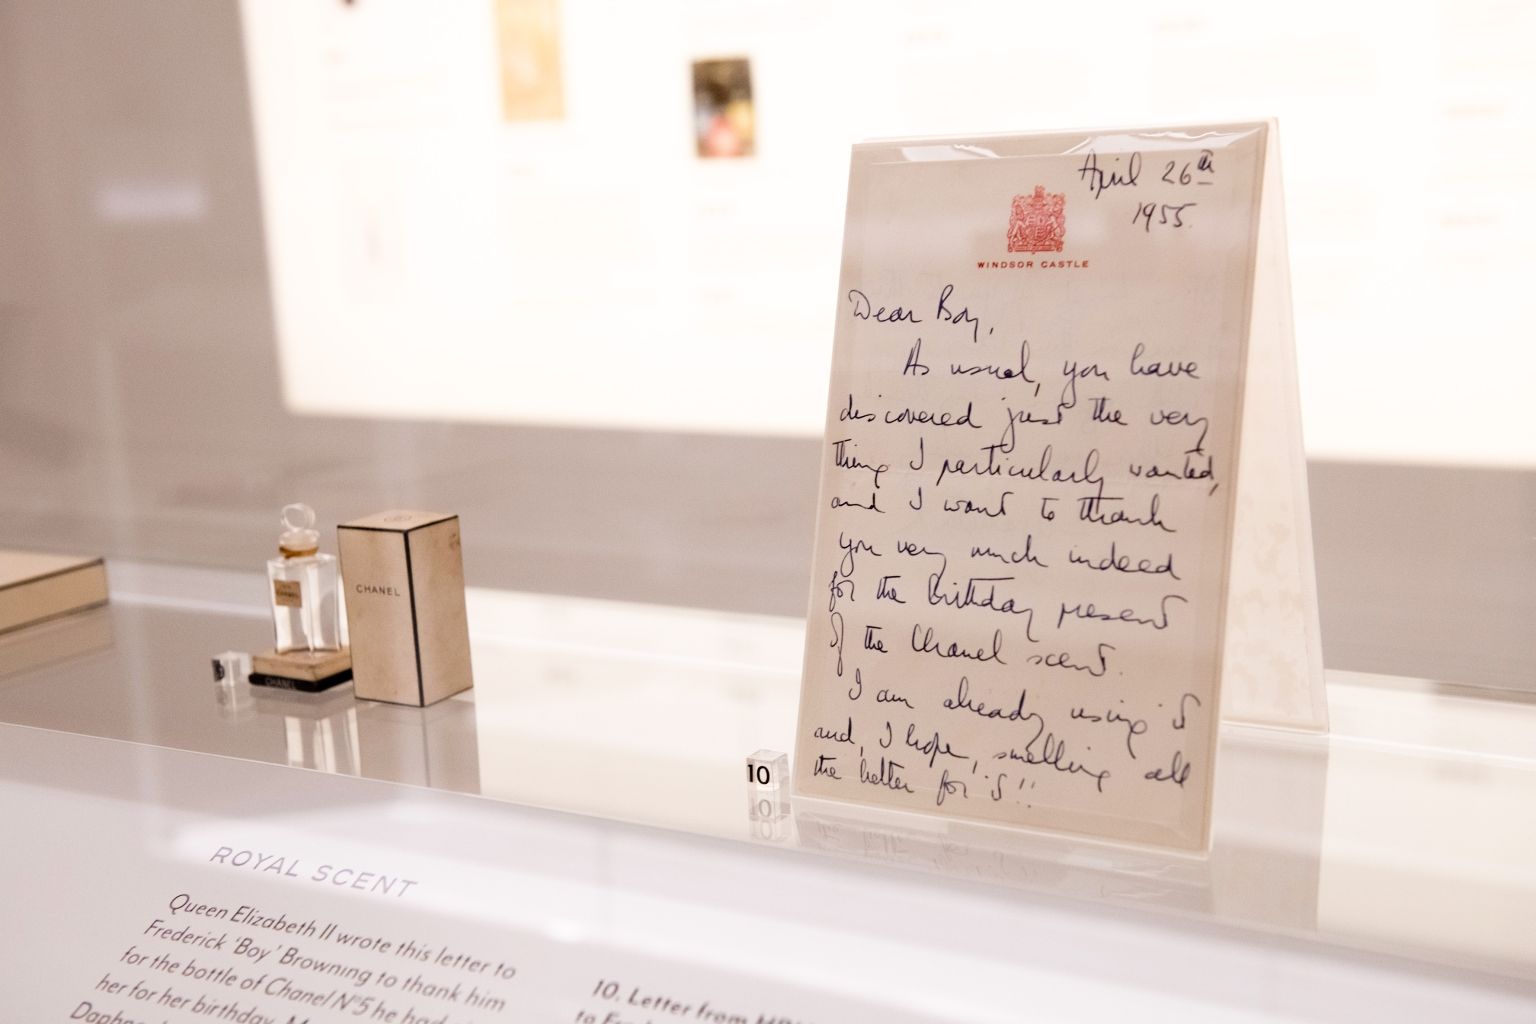 April 26th
1955.
WINDSOR CASTLE
Dear Boy,
As usual, you have
discovered just the very
thing I particularly wanted,
and I want to thank
you very much indeed
for the birthday present
of the Chanel scent.
I am already using it
and, I hope, smelling all
the better for it!!
CHANEL
CHANEL
CHANEL
10
ROYAL SCENT
Queen Elizabeth II wrote this letter to
Frederick 'Boy' Browning to thank him
for the bottle of Chanel N°5 he had
her for her birthday.
10. Letter from